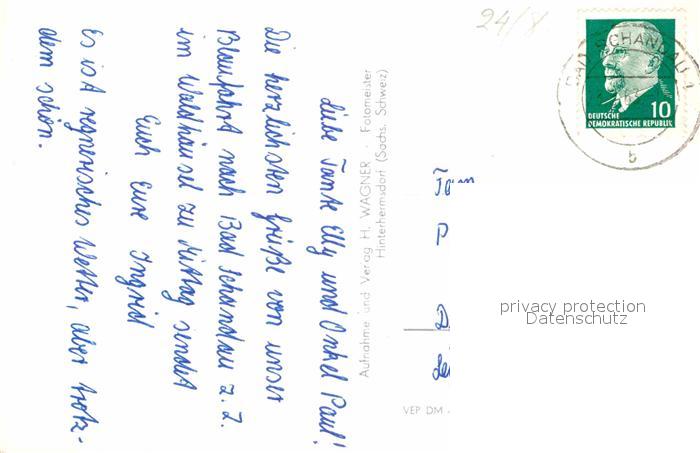 24/8
Liebe Tante Elly und Onkel Paul!
Die herzlichsten Grüße von unser
Blaufahrt nach Bad Schandau z. Z.
im Waldhäusel zu Mittag sendet
Euch Eure Ingrid
Es ist regnerisches Wetter, aber trotz-
dem schön.
Aufnahme und Verlag H. WAGNER · Fotomeister
Hinterhermsdorf (Sächs. Schweiz)
VEP DM
BAD SCHANDAU 1
b
10
DEUTSCHE
DEMOKRATISCHE REPUBLIK
P
D
privacy protection
Datenschutz